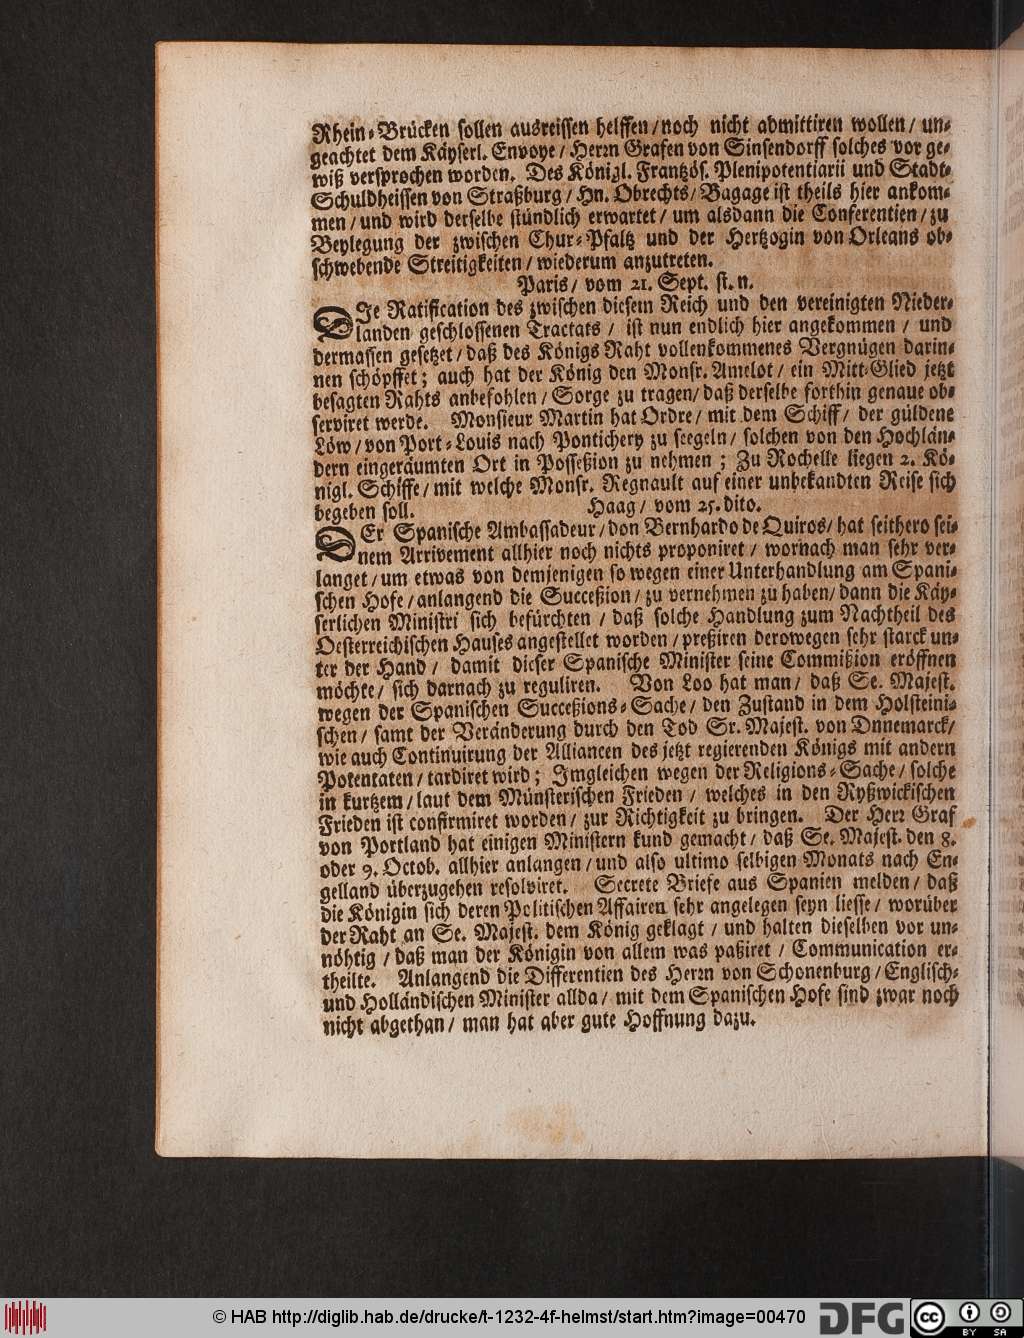 Rhein-Brücken sollen ausreissen helffen / noch nicht admittiren wollen / un-
geachtet dem Käyserl. Envoye / Herrn Grafen von Sinsendorff solches vor ge-
wiß versprochen worden. Des Königl. Frantzös. Plenipotentiarii und Stadt-
Schuldheissen von Straßburg / Hn. Obrechts / Bagage ist theils hier ankom-
men / und wird derselbe stündlich erwartet / um alsdann die Conferentien / zu
Beylegung der zwischen Chur-Pfaltz und der Hertzogin von Orleans ob-
schwebende Streitigkeiten / wiederum anzutreten.
Paris / vom 21. Sept. st. n.
DIe Ratification des zwischen diesem Reich und den vereinigten Nieder-
landen geschlossenen Tractats / ist nun endlich hier angekommen / und
dermassen gesetzet / daß des Königs Raht vollenkommenes Vergnügen darin-
nen schöpffet; auch hat der König den Monsr. Amelot / ein Mitt-Glied jetzt
besagten Rahts anbefohlen / Sorge zu tragen / daß derselbe forthin genaue ob-
serviret werde. Monsieur Martin hat Ordre / mit dem Schiff / der güldene
Löw / von Port-Louis nach Pontichery zu seegeln / solchen von den Hochlän-
dern eingeräumten Ort in Posseßion zu nehmen; Zu Rochelle liegen 2. Kö-
nigl. Schiffe / mit welche Monsr. Regnault auf einer unbekandten Reise sich
begeben soll. Haag / vom 25. dito.
DEr Spanische Ambassadeur / don Bernhardo de Quiros / hat seithero sei-
nem Arrivement allhier noch nichts proponiret / wornach man sehr ver-
langet / um etwas von demjenigen so wegen einer Unterhandlung am Spani-
schen Hofe / anlangend die Succeßion / zu vernehmen zu haben / dann die Käy-
serlichen Ministri sich befürchten / daß solche Handlung zum Nachtheil des
Oesterreichischen Hauses angestellet worden / preßiren derowegen sehr starck un-
ter der Hand / damit dieser Spanische Minister seine Commißion eröffnen
möchte / sich darnach zu reguliren. Von Loo hat man / daß Se. Majest.
wegen der Spanischen Succeßions-Sache / den Zustand in dem Holsteini-
schen / samt der Veränderung durch den Tod Sr. Majest. von Dnnemarck /
wie auch Continuirung der Alliancen des jetzt regierenden Königs mit andern
Potentaten / tardiret wird; Imgleichen wegen der Religions-Sache / solche
in kurtzem / laut dem Münsterischen Frieden / welches in den Ryßwickischen
Frieden ist confirmiret worden / zur Richtigkeit zu bringen. Der Herr Graf
von Portland hat einigen Ministern kund gemacht / daß Se. Majest. den 8.
oder 9. Octob. allhier anlangen / und also ultimo selbigen Monats nach En-
gelland überzugehen resolviret. Secrete Briefe aus Spanien melden / daß
die Königin sich deren Politischen Affairen sehr angelegen seyn liesse / worüber
der Raht an Se. Majest. dem König geklagt / und halten dieselben vor un-
nöhtig / daß man der Königin von allem was paßiret / Communication er-
theilte. Anlangend die Differentien des Herrn von Schonenburg / Englisch-
und Holländischen Minister allda / mit dem Spanischen Hofe sind zwar noch
nicht abgethan / man hat aber gute Hoffnung dazu.
© HAB http://diglib.hab.de/drucke/t-1232-4f-helmst/start.htm?image=00470
DFG
cc
BY SA